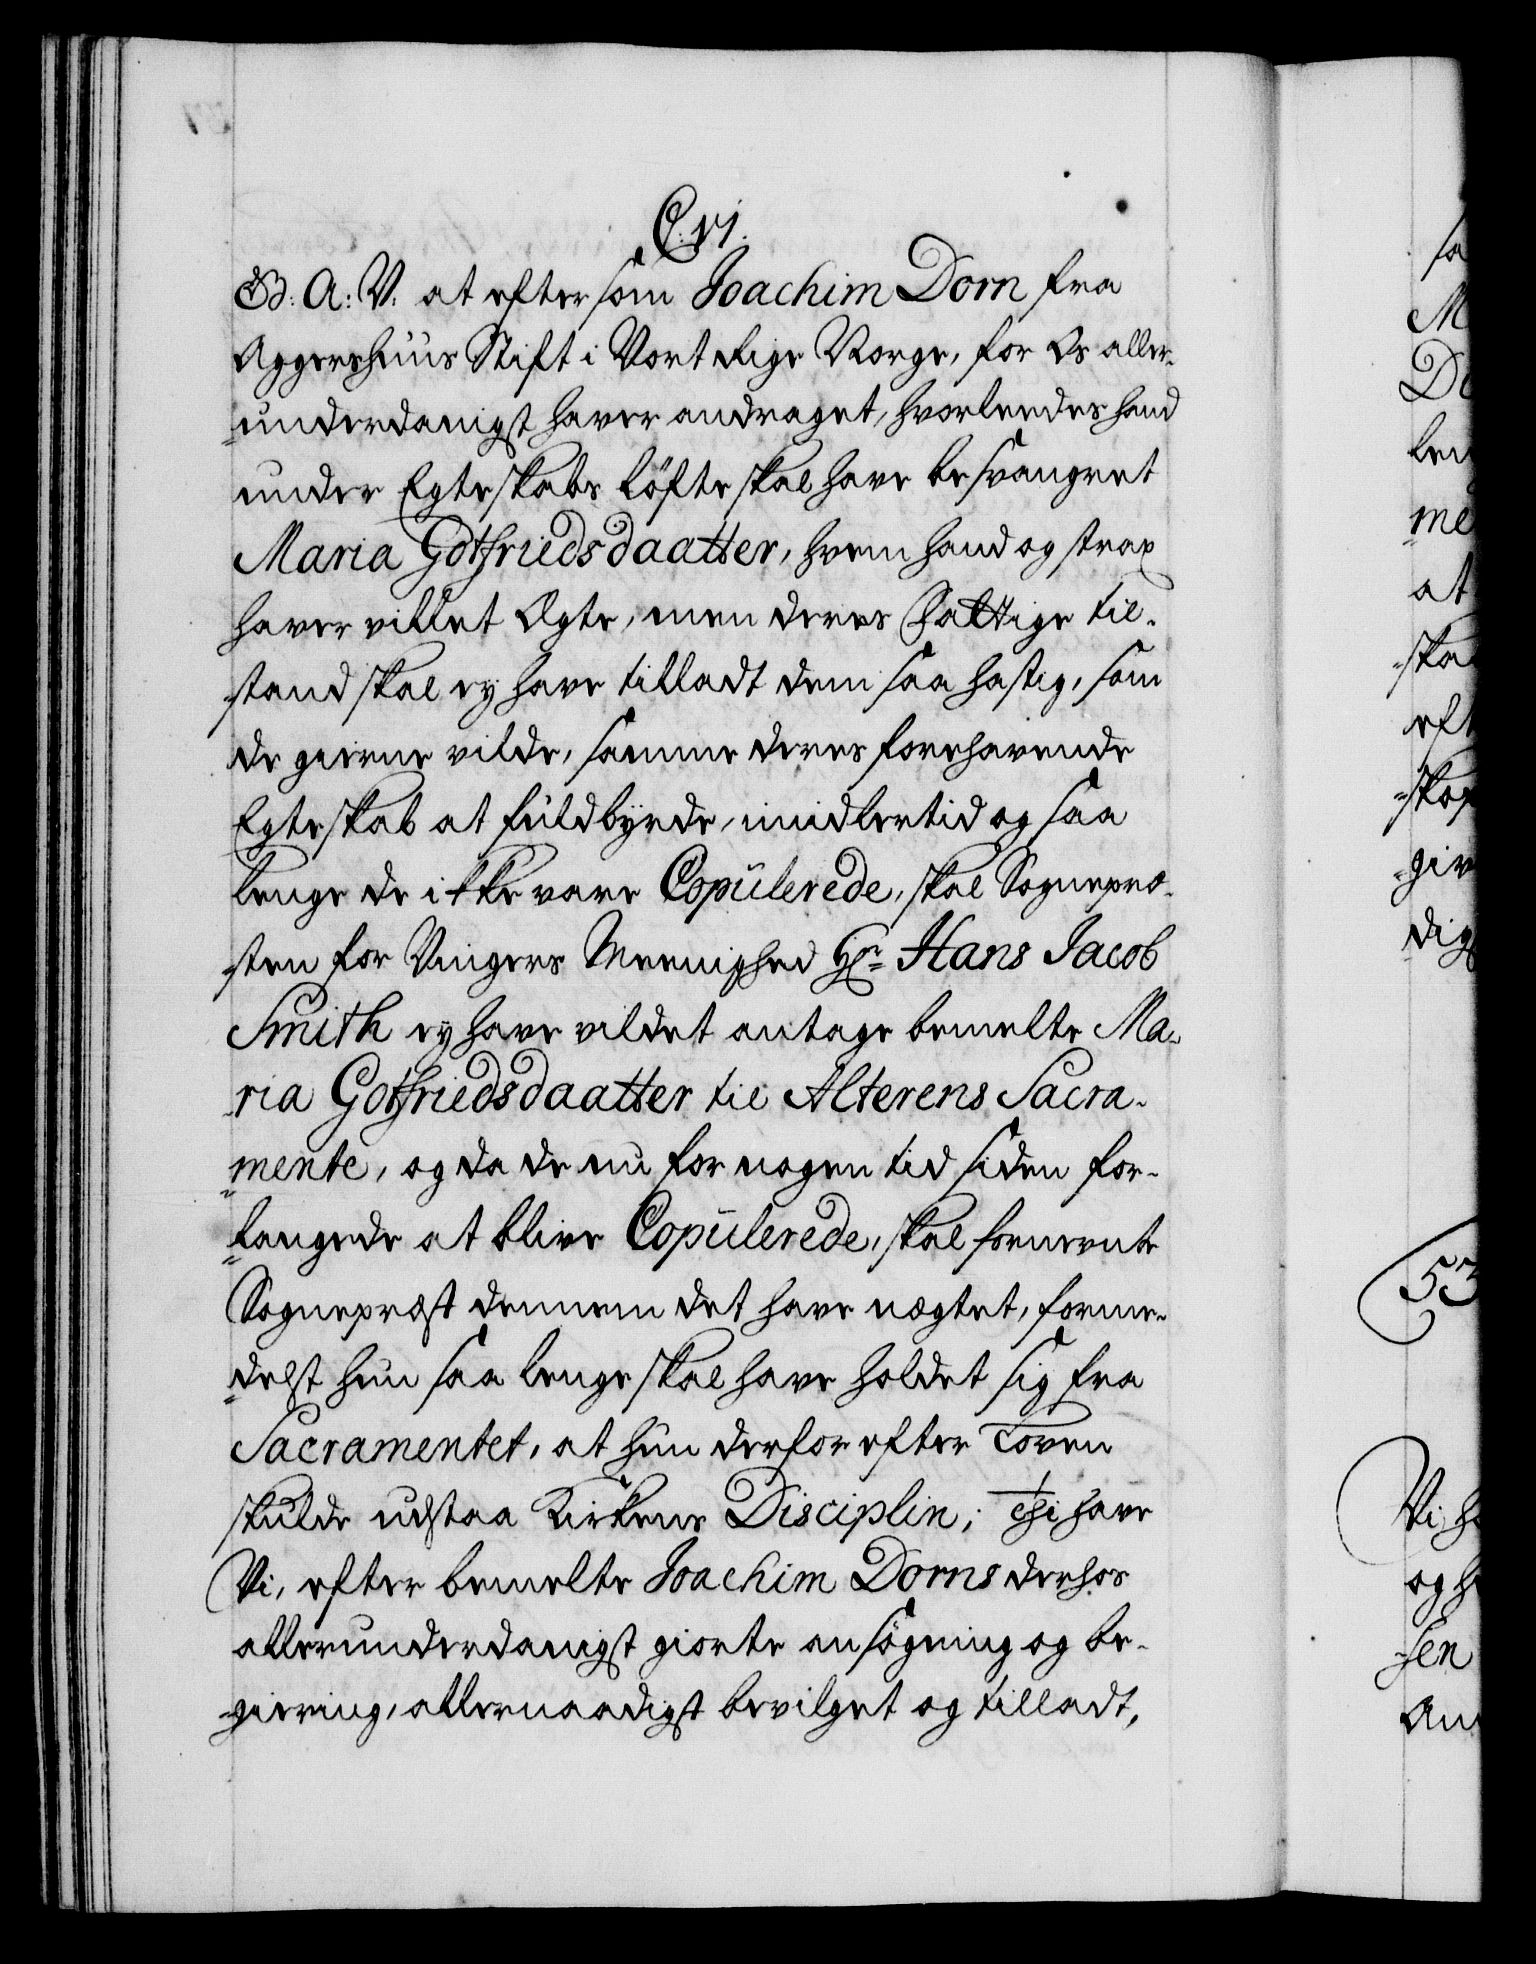 C. VI.
G: A: V. at eftersom Joachim Dorn fra
Aggershuus Stift i Vort Rige Norge, for Os aller-
underdanigst haver andraget, hvorleedes hand
under Egteskabs löfte skal have besvangret
Maria Gotfriedsdaatter, hvem hand og strax
haver villet Ægte, men deres Fattige til-
stand skal ey have tilladt dem saa hastig, som
de gierne vilde, samme deres forehavende
Egteskab at fuldbyrde, imidlertid og saa
lenge de ikke vare Copulerede, skal Sognepræ-
sten for Vingers Meenighed Hr. Hans Jacob
Smith ey have vildet antage bemelte Ma-
ria Gotfriedsdaatter til Alterens Sacra-
mente, og da de nu for nogen tid siden for-
langede at blive Copulerede, skal fornevnte
Sognepræst dennem det have nægtet, forme-
delst hun saa lenge skal have holdet sig fra
Sacramentet, at hun derfor efter Loven
skulde udstaa Kirkens Disciplin; Thi have
Vi, efter bemelte Joachim Dorns derhos
allerunderdanigst giorte ansögning og be-
giering, allernaadigst bevilget og tilladt,